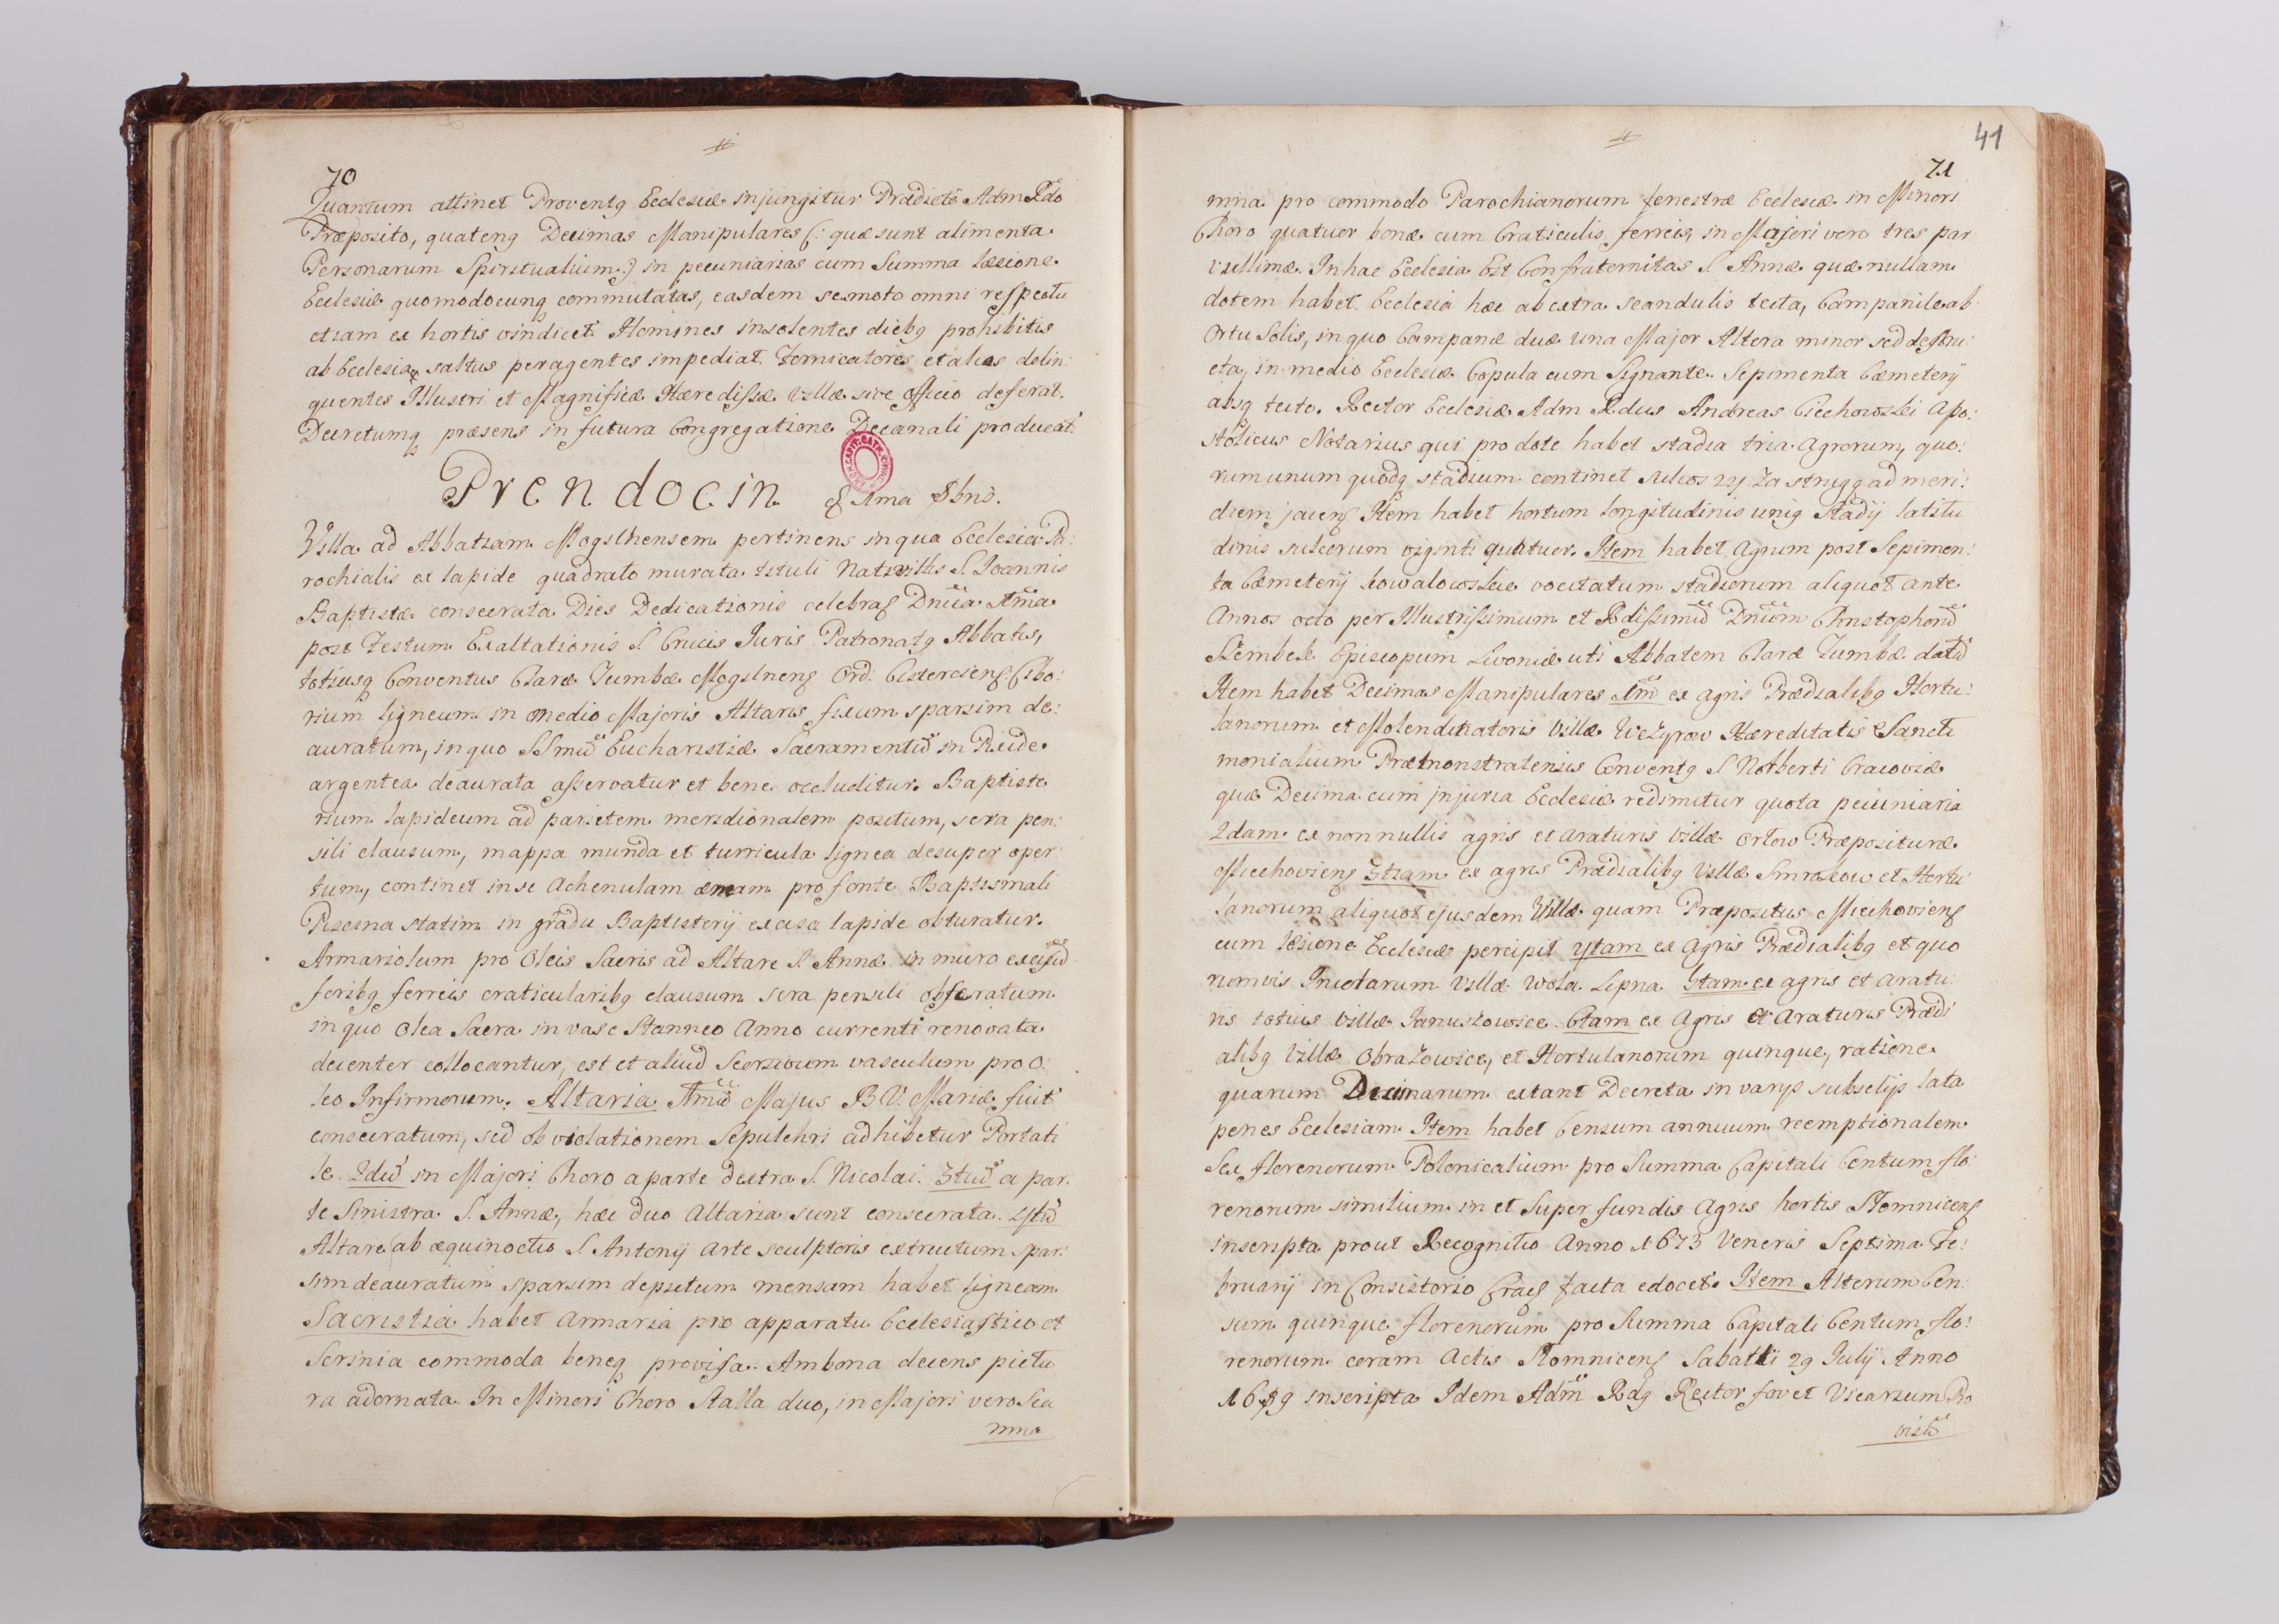 70
Quantum attinet Proventq Ecclesiæ injungitur Prædicto Adm Rdo
Præposito, quatenq Decimas Manipulares (: quæ sunt alimenta
Personarum Spiritualium :) in pecuniarias cum Summa læsione
Ecclesiæ quomodocunq commutatas, easdem semoto omni respectu
etiam ex hortis vindicet. Homines insolentes diebq prohibitis
ab Ecclesia saltus peragentes impediat. Fornicatores et alios delin:
quentes Illustri et Magnificæ Hæredissæ Villæ sive Officio deferat.
Decretumq præsens in futura Congregatione Decanali producat.
Prendocin 1ma 8bris.
Villa ad Abbatiam Mogilnensem pertinens in qua Ecclesia Pa:
rochialis ex lapide quadrato murata tituli Nativitatis S. Ioannis
Baptistæ consecrata Dies Dedicationis celebrat Dnica 1ma
post Festum Exaltationis S. Crucis Juris Patronatq Abbatis,
totiusq Conventus Claræ Tumbæ Mogilnens Ord: Cisterciens Cibo:
rium ligneum in medio Majoris Altaris fixum sparsim de:
auratum, in quo SSmũ Eucharistiæ Sacramentũ in Pixide
argentea deaurata asservatur et bene occluditur. Baptiste
rium lapideum ad parietem meridionalem positum, sera pen:
sili clausum, mappa munda et turricula lignea desuper oper
tum, continet in se Achenulam æneam pro fonte Baptismali
Piscina statim in gradu Baptisterij excisa lapide obturatur.
Armariolum pro Oleis Sacris ad Altare S. Annæ in muro excisũ
foribq ferreis craticularibq clausum sera pensili obseratum
in quo Olea Sacra in vase Stanneo Anno currenti renovata
decenter collocantur, est et aliud Seorsivum vasculum pro O:
leo Infirmorum. Altaria 1mũ Majus B V. Mariæ fuit
consecratum, sed ob violationem Sepulchri adhibetur Portati
le. 2dũ in Majori Choro a parte dextra S. Nicolai. 3tiũ a par:
te Sinistra S. Annæ, hæc duo Altaria sunt consecrata. 4tũ
Altare ab æquinoctio S. Antonij Arte sculptoris extructum spar:
sim deauratum sparsim depictum mensam habet ligneam
Sacristia habet Armaria pro apparatu Ecclesiastico et
Scrinia commoda beneq provisa. Ambona decens pictu
ra adornata. In Minori Choro Stalla duo, in Majori vero Sca
mna
41
71
mna pro commodo Parochianorum fenestræ Ecclesiæ in Minori
Choro quatuor bonæ cum Craticulis ferreis, in Majori vero tres par
vullimæ. In hac Ecclesia Est Confraternitas S. Annæ quæ nullam
dotem habet. Ecclesia hæc ab extra scandulis tecta, Campanile ab
Ortu Solis, in quo Campanæ duæ una Major Altera minor sed destru:
cta, in medio Ecclesiæ Copula cum Signante. Sepimenta Cæmeterij
absq tecto. Rector Ecclesiæ Adm Rdus Andreas Ciechowski Apo:
stolicus Notarius qui pro dote habet stadia tria Agrorum, quo:
rum unum quodq stadium continet sulcos ad meri:
diem jacens Item habet hortum longitudinis uniq Stadij latitu
dinis sulcorum viginti quatuor. Item habet Agrum post Sepimen:
ta Cæmeterij kowalowskie vocitatum stadiorum aliquot ante
Annos octo per Illustrissimum et Rdissimũ Dnum Christophorũ
Szembek Episcopum Livoniæ uti Abbatem Claræ Tumbæ datũ
Item habet Decimas Manipulares 1mũ ex agris Prædialibq Hortu:
lanorum et Molendinatoris Villæ Hæreditatis Sancti
monialium Præmonstratensis Conventq S. Norberti Cracoviæ
quæ Decima cum injuria Ecclesiæ redimitur quota pecuniaria
2dam ex nonnullis agris et araturis Villæ Orłow Præposituræ
Miechoviens 3tiam ex agris Prædialibq Villæ et Hortu
lanorum aliquot ejusdem Villæ quam Præpositus Miechoviens
cum læsione Ecclesiæ percipit 4tam ex Agris Prædialibq et quo
rumvis Incolarum Villæ Wola Lipna. 5tam ex agris et Aratu
ris totius Villæ Januszowice. 6tam ex Agris et Araturis Prædi
alibq Villæ Obrazowice, et Hortulanorum quinque, ratione
quarum Decimarum extant Decreta in varijs subselijs lata
penes Ecclesiam. Item habet Censum annuum reemptionalem
Sex florenorum Polonicalium pro Summa Capitali Centum flo:
renorum similium in et super fundis Agris hortis Słomnicens
inscripta prout Recognitio Anno 1673 Veneris Septima Fe:
bruarij in Consistorio Cracs facta edocet. Item Alterum Cen:
sum quinque florenorum pro Summa Capitali Centum flo:
renorum coram Actis Słomnicens Sabathi 29 Julij Anno
inscripta Idem Adm Rdq Rector fovet Vicarium Pro
visũ